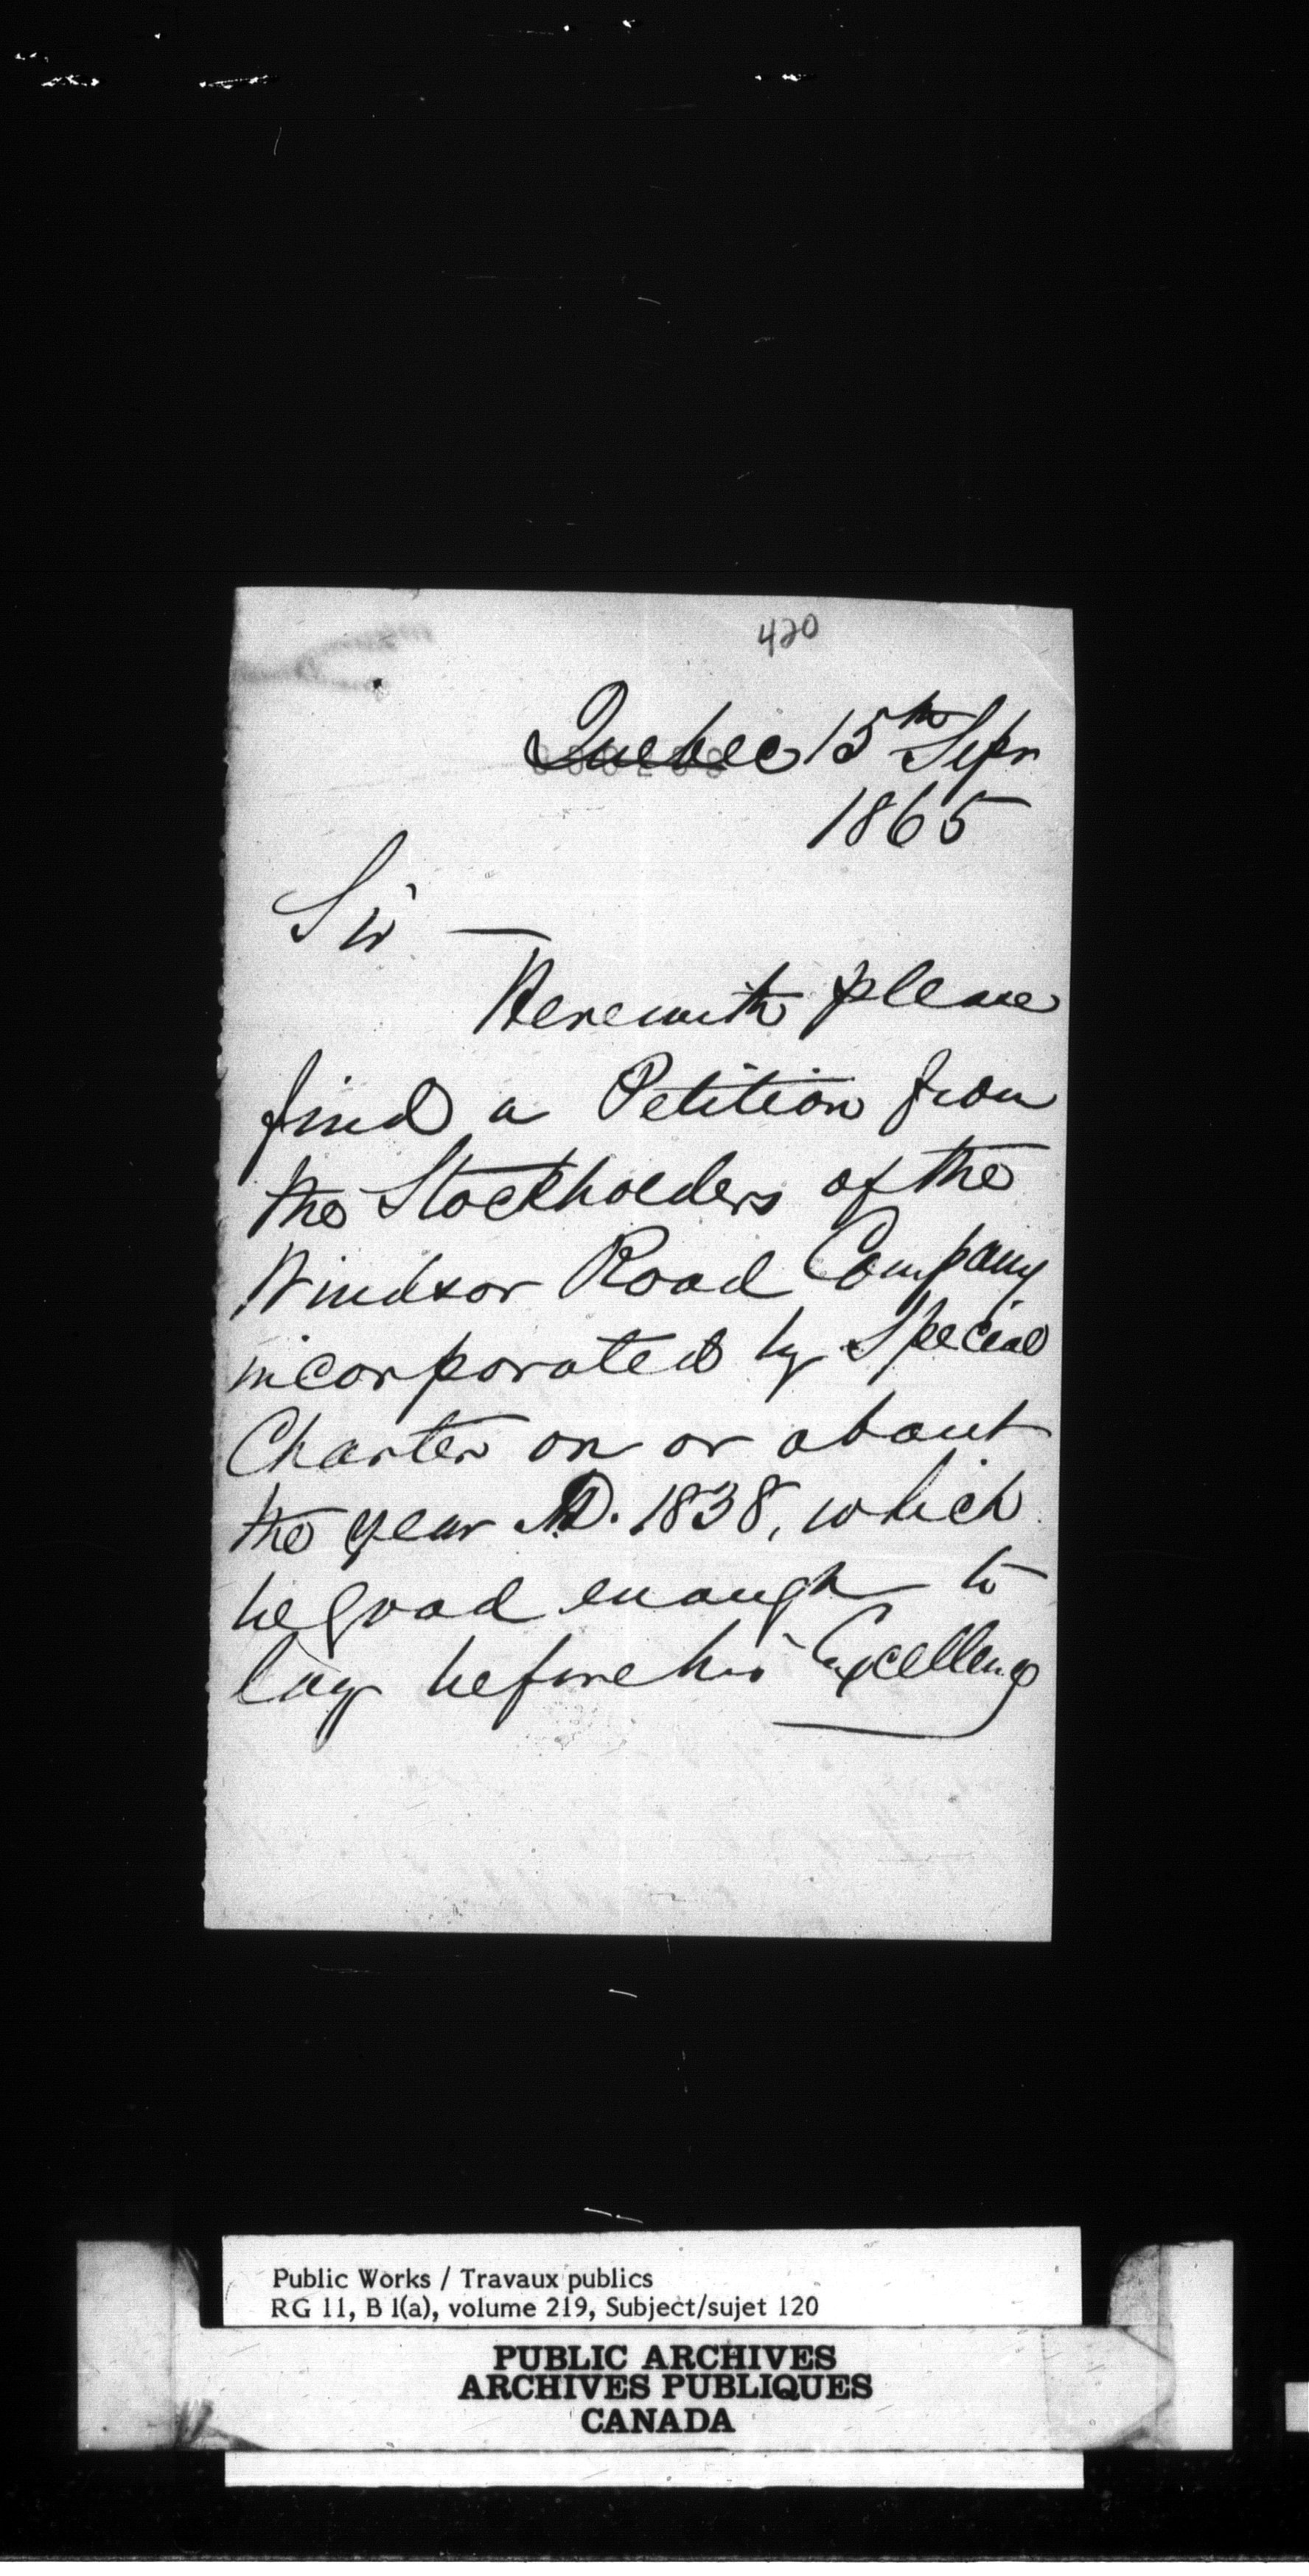 420
Quebec 15th Sepr
1865
Sir —
Herewith please
find a Petition from
the Stockholders of the
Windsor Road Company
incorporated by Special
Charter on or about
the year AD. 1838, which
be good enough to
lay before his Excellency
Public Works / Travaux publics
RG 11, B 1(a), volume 219, Subject/sujet 120
PUBLIC ARCHIVES
ARCHIVES PUBLIQUES
CANADA